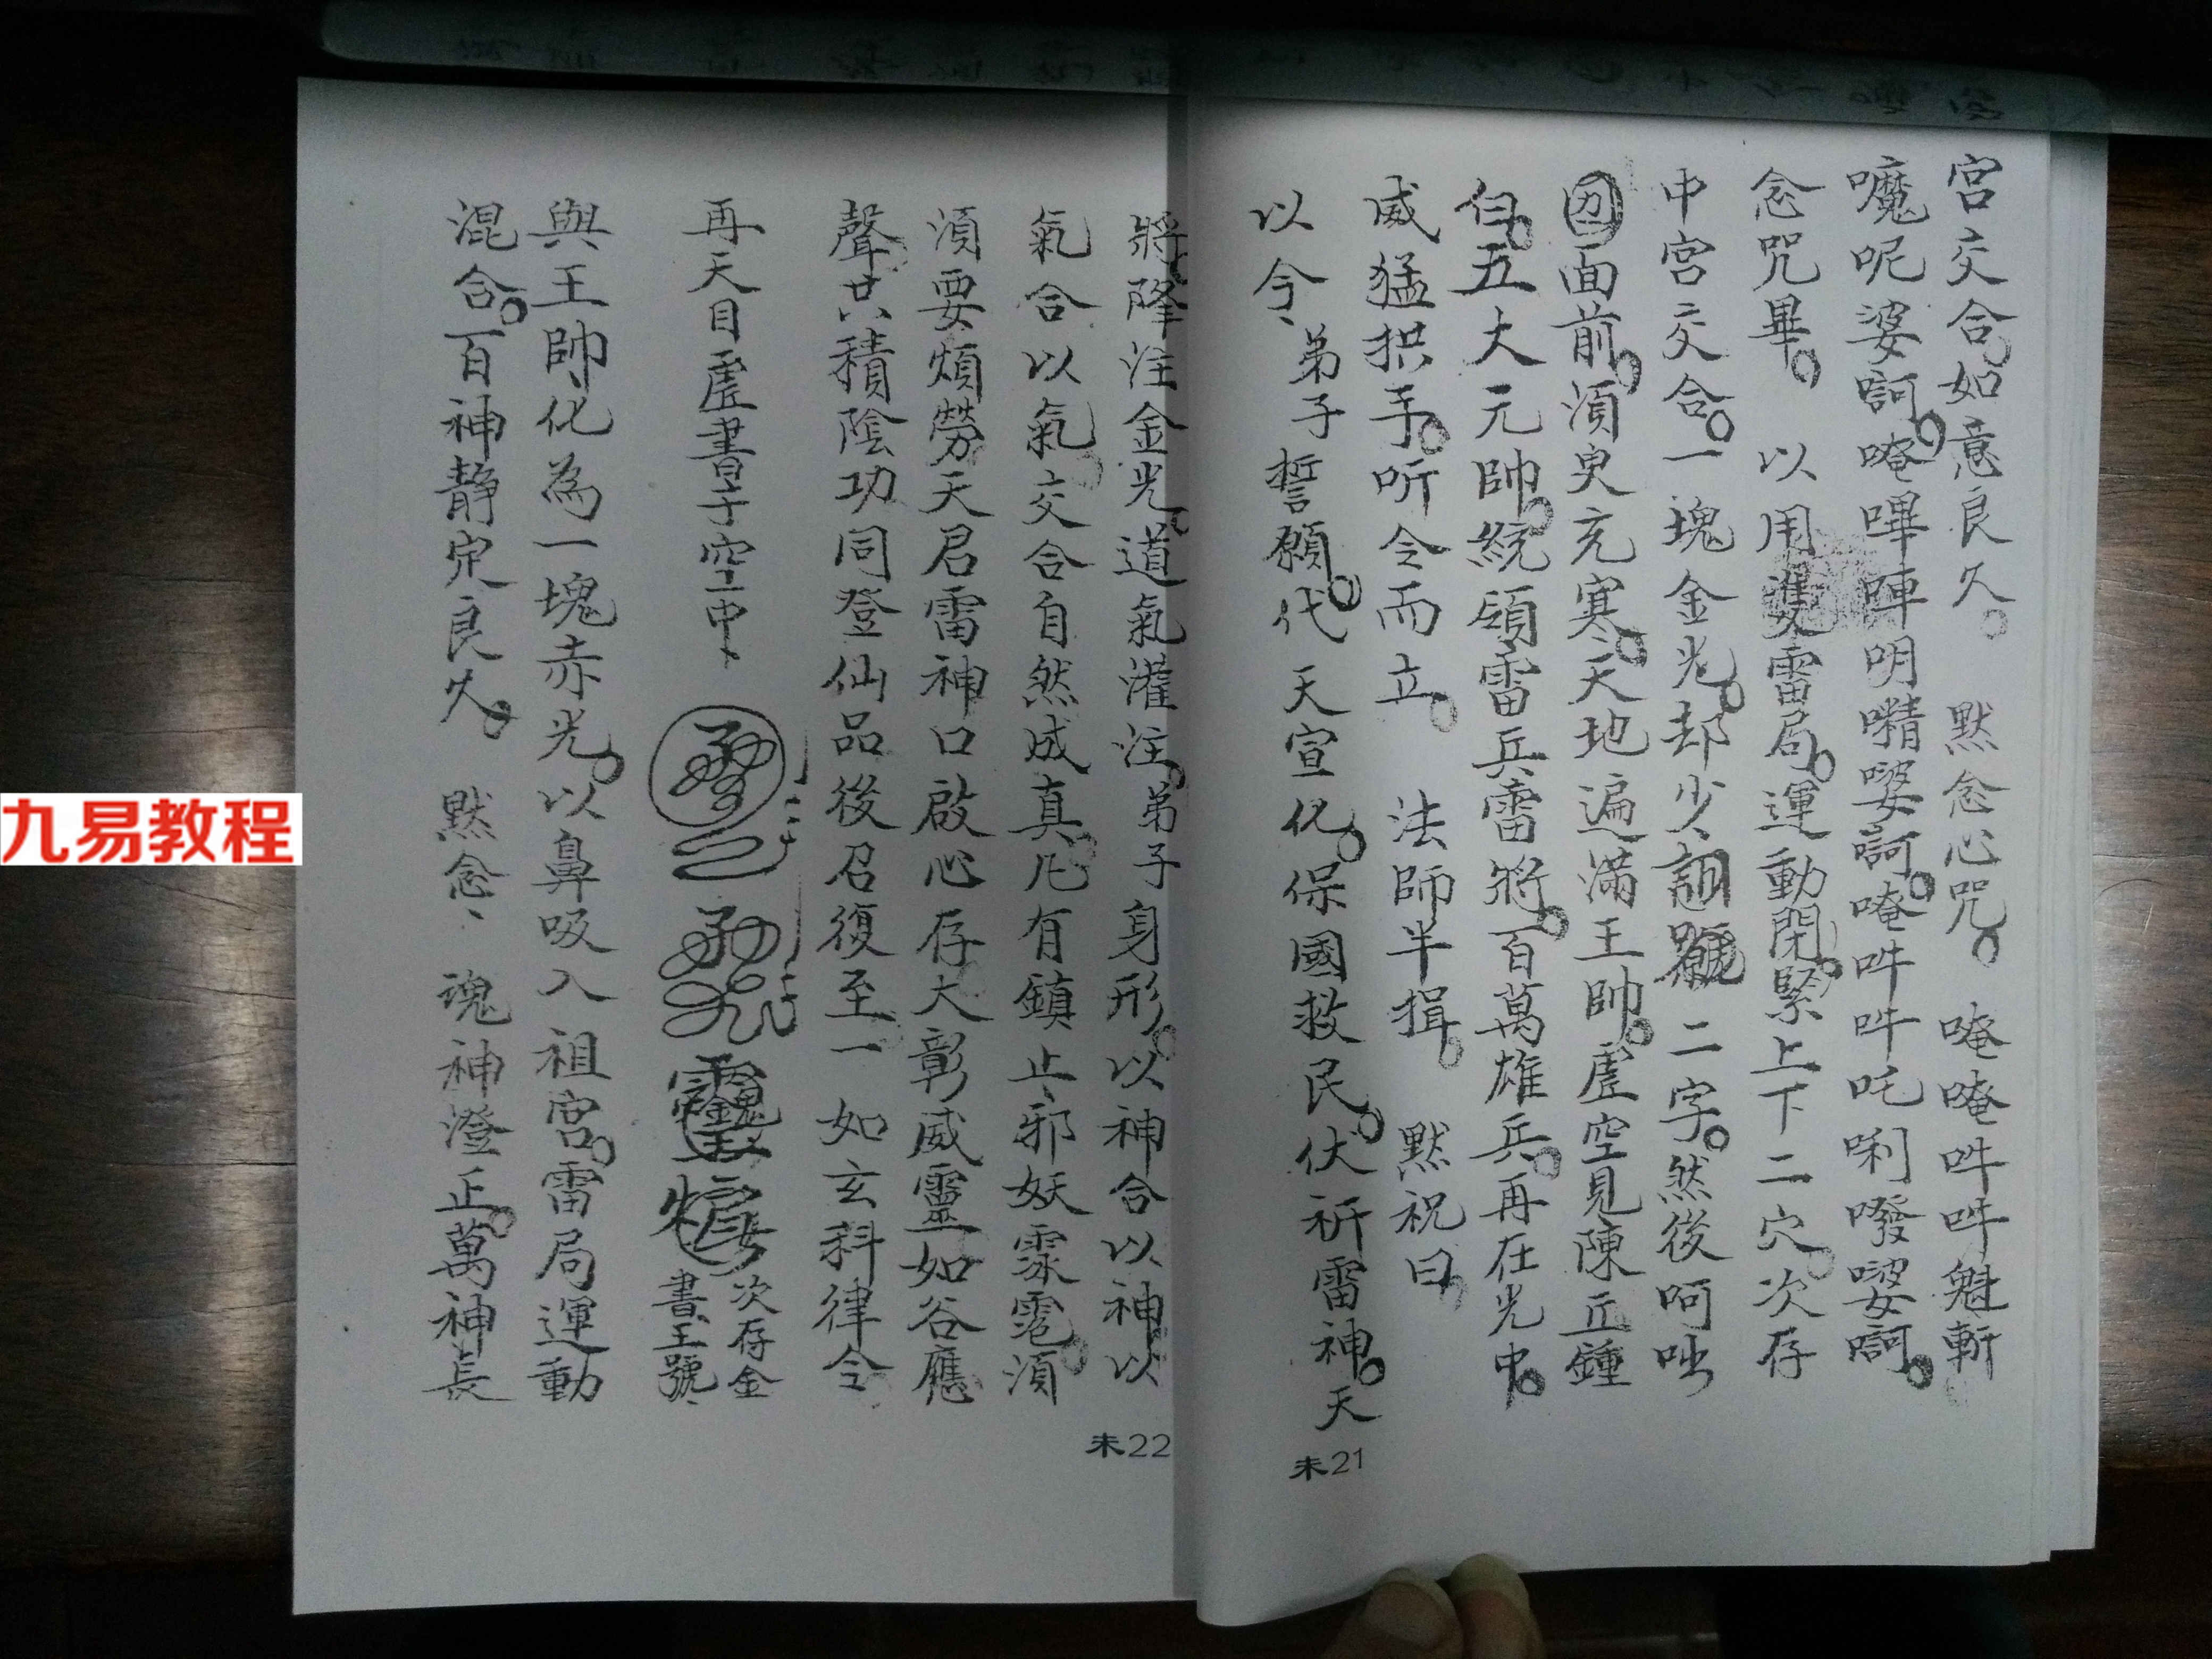 宮交合如意良久。默念心咒。唵唵吽吽魁斬
嚒呢娑訶。唵嗶㖔明囋娑訶。唵吽吽吒唎嚩娑訶。
念咒畢。以用雙雷局。運動閉緊上下二穴。次存
中宮交合。一塊金光。却少、二字。然後呵出
面前。湏臾充寒。天地遍滿王帥。虛空見陳丘鍾
五大元帥。統領雷兵雷將。百萬雄兵。再在光中。
威猛拱手。听令而立。法師半揖。默祝曰
以今、弟子誓願。代天宣化。保國救民。伏祈雷神。天
未21
將降注金光。道氣灌注。弟子身形。以神合以神以
氣合以氣交合自然成真。凡有鎮止邪妖霖雹。湏
湏要煩勞天君雷神口啟心存大彰威靈如谷應
聲共積陰功同登仙品後召復至一如玄科律令
再天目虛書于空中、
次存金
書王號、
與王帥化為一塊赤光。以鼻吸入祖宮。雷局運動
混合。百神静定良久。默念、魂神澄正。萬神長
未22
九易教程